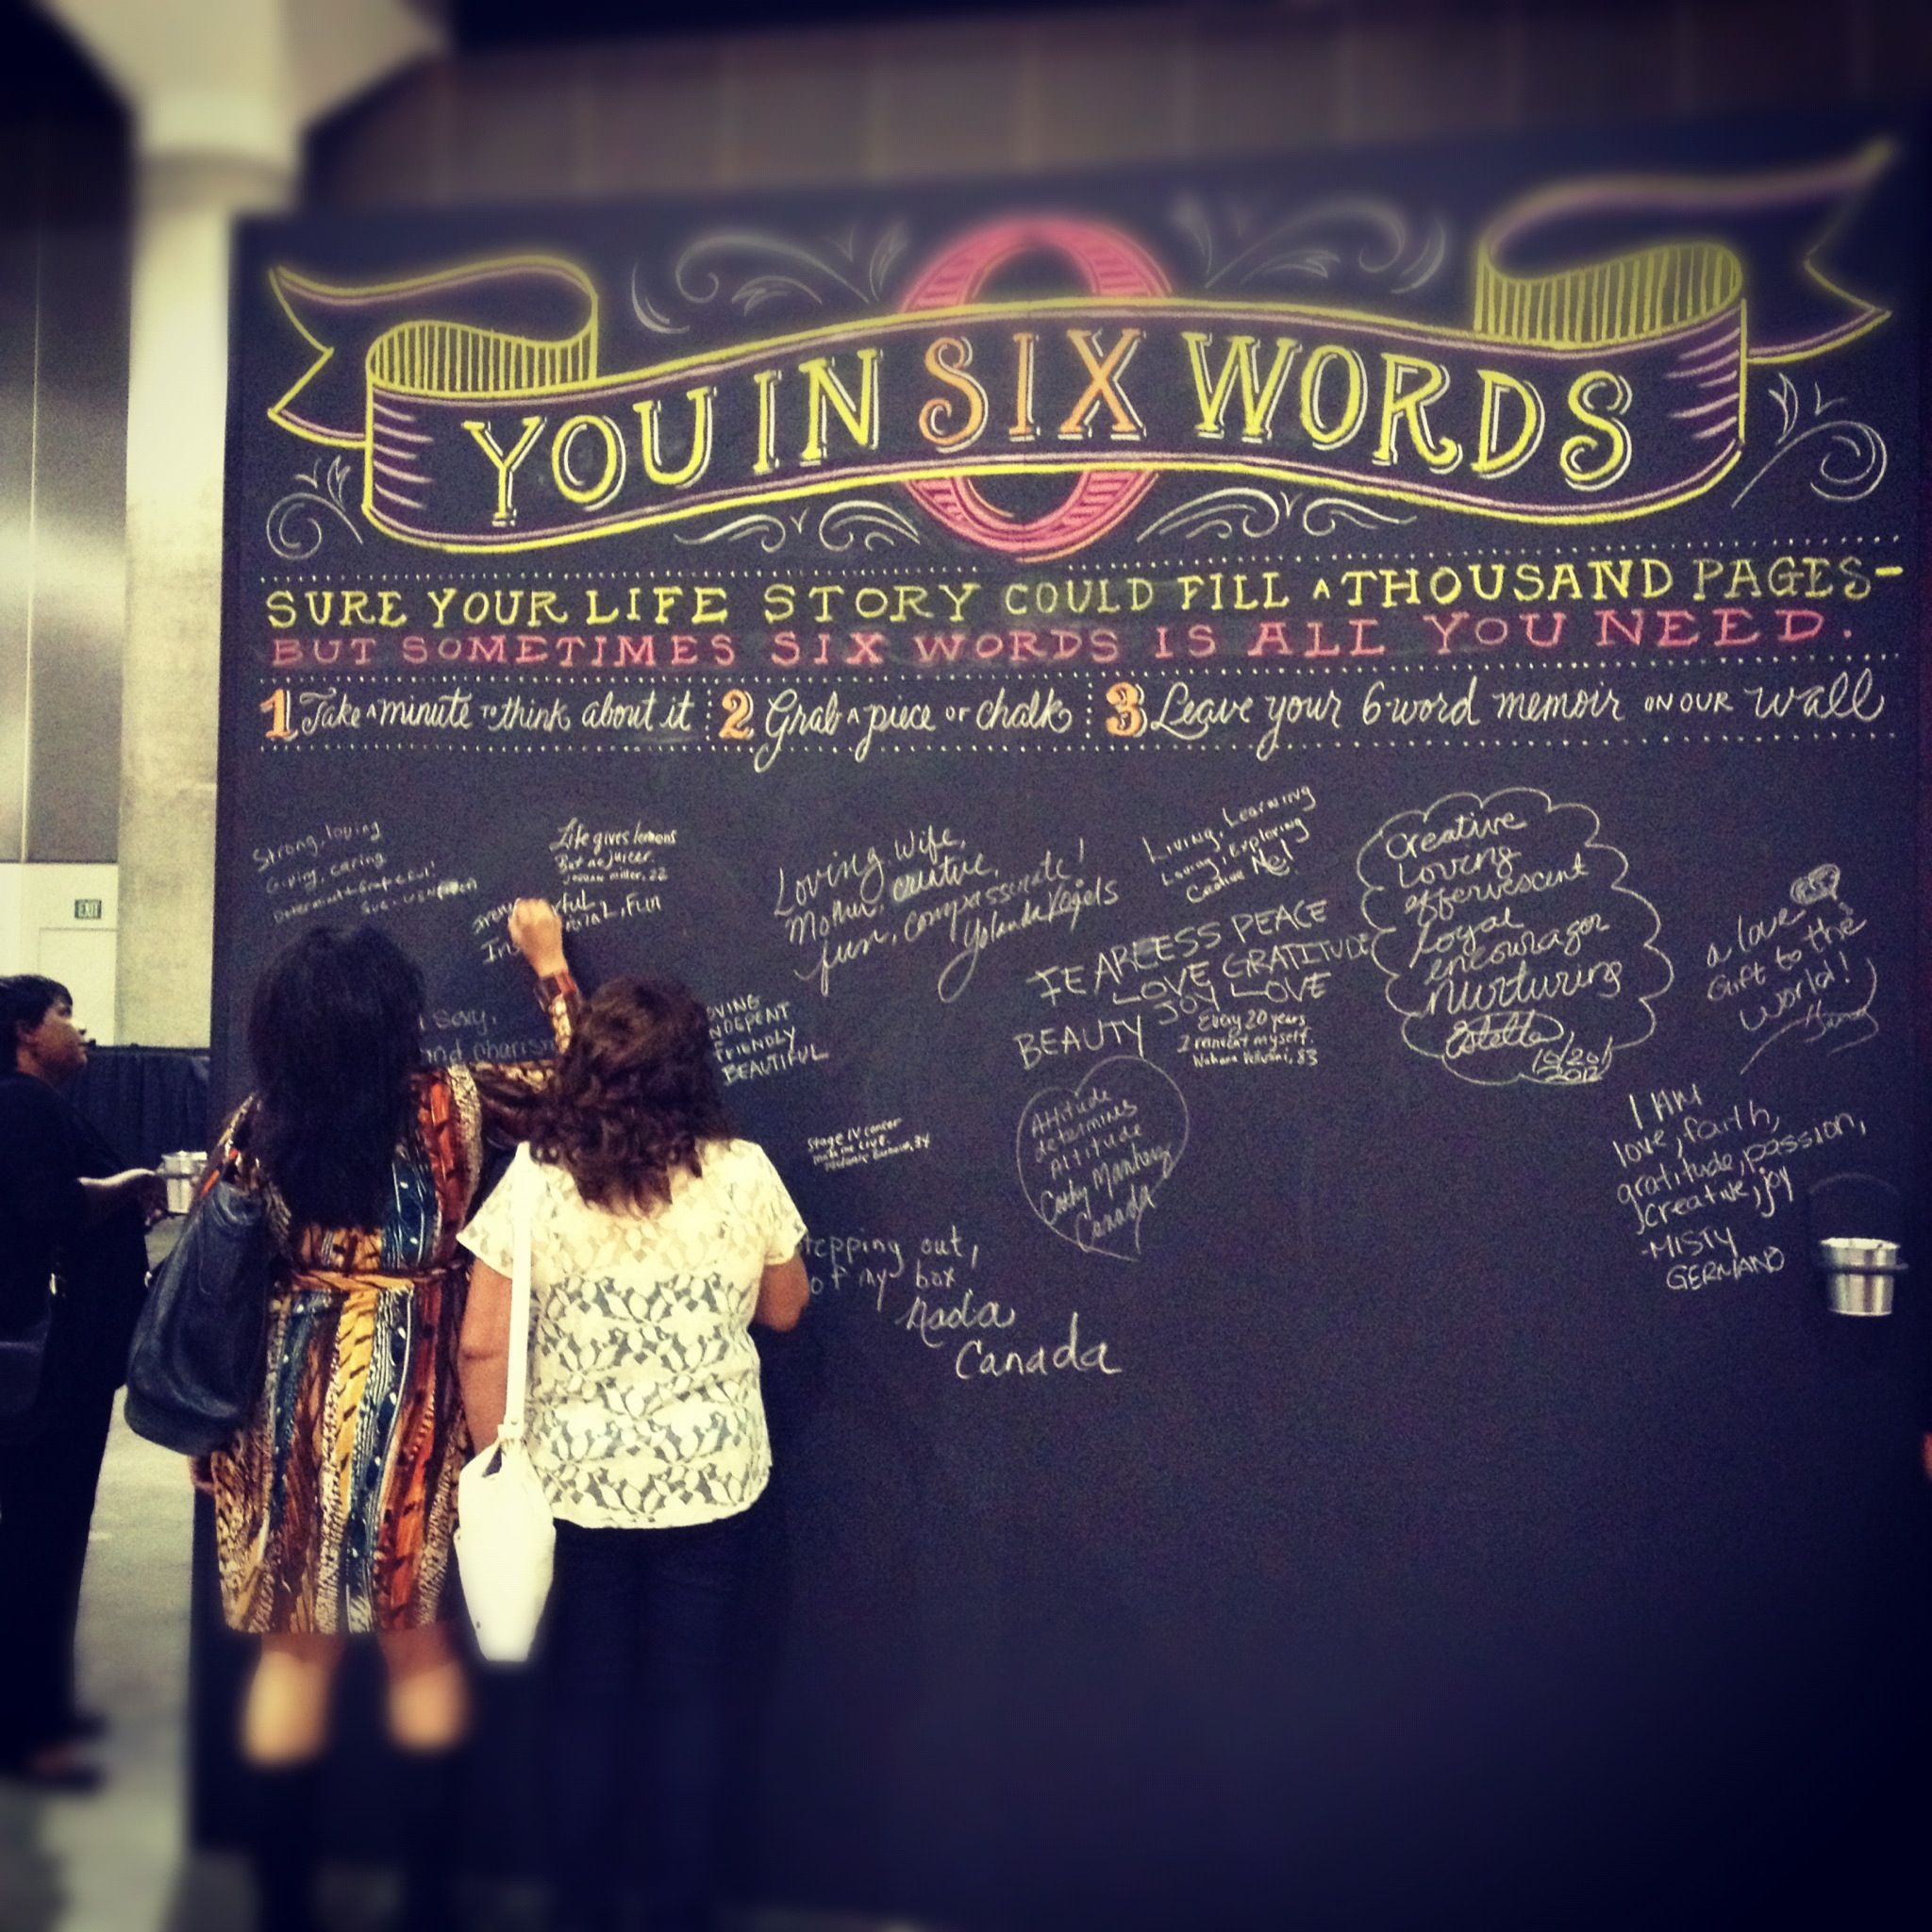 O
YOU IN SIX WORDS
SURE YOUR LIFE STORY COULD FILL A THOUSAND PAGES-
BUT SOMETIMES SIX WORDS IS ALL YOU NEED.
1 Take a minute to think about it 2 Grab a piece of chalk 3 Leave your 6-word memoir ON OUR wall
Strong, loving
Giving, caring
Determinate Grateful!
Life gives lemons
But no juicer.
miller, 22
FUN
Loving, Wife,
Mother, creative,
fun, compassionate!
Yolanda Vogels
Living, Learning
Loving, Exploring
Creative Me!
FEARLESS PEACE
LOVE GRATITUDE
JOY LOVE
BEAUTY
Every 20 years
I reinvent myself.
83
Creative
Loving
effervescent
Loyal
encourager
nurturing
Estella
10/20/
2012
a love
Gift to the
world!
EXIT
sexy,
and charism
INDEPENT
FRIENDLY
BEAUTIFUL
Stage IV cancer
made me live.
34
Attitude
determines
Altitude
Cathy
Canada
I AM
love, faith,
gratitude, passion,
creative, joy
-MISTY
GERMANO
tepping out,
of my box
Nada
Canada